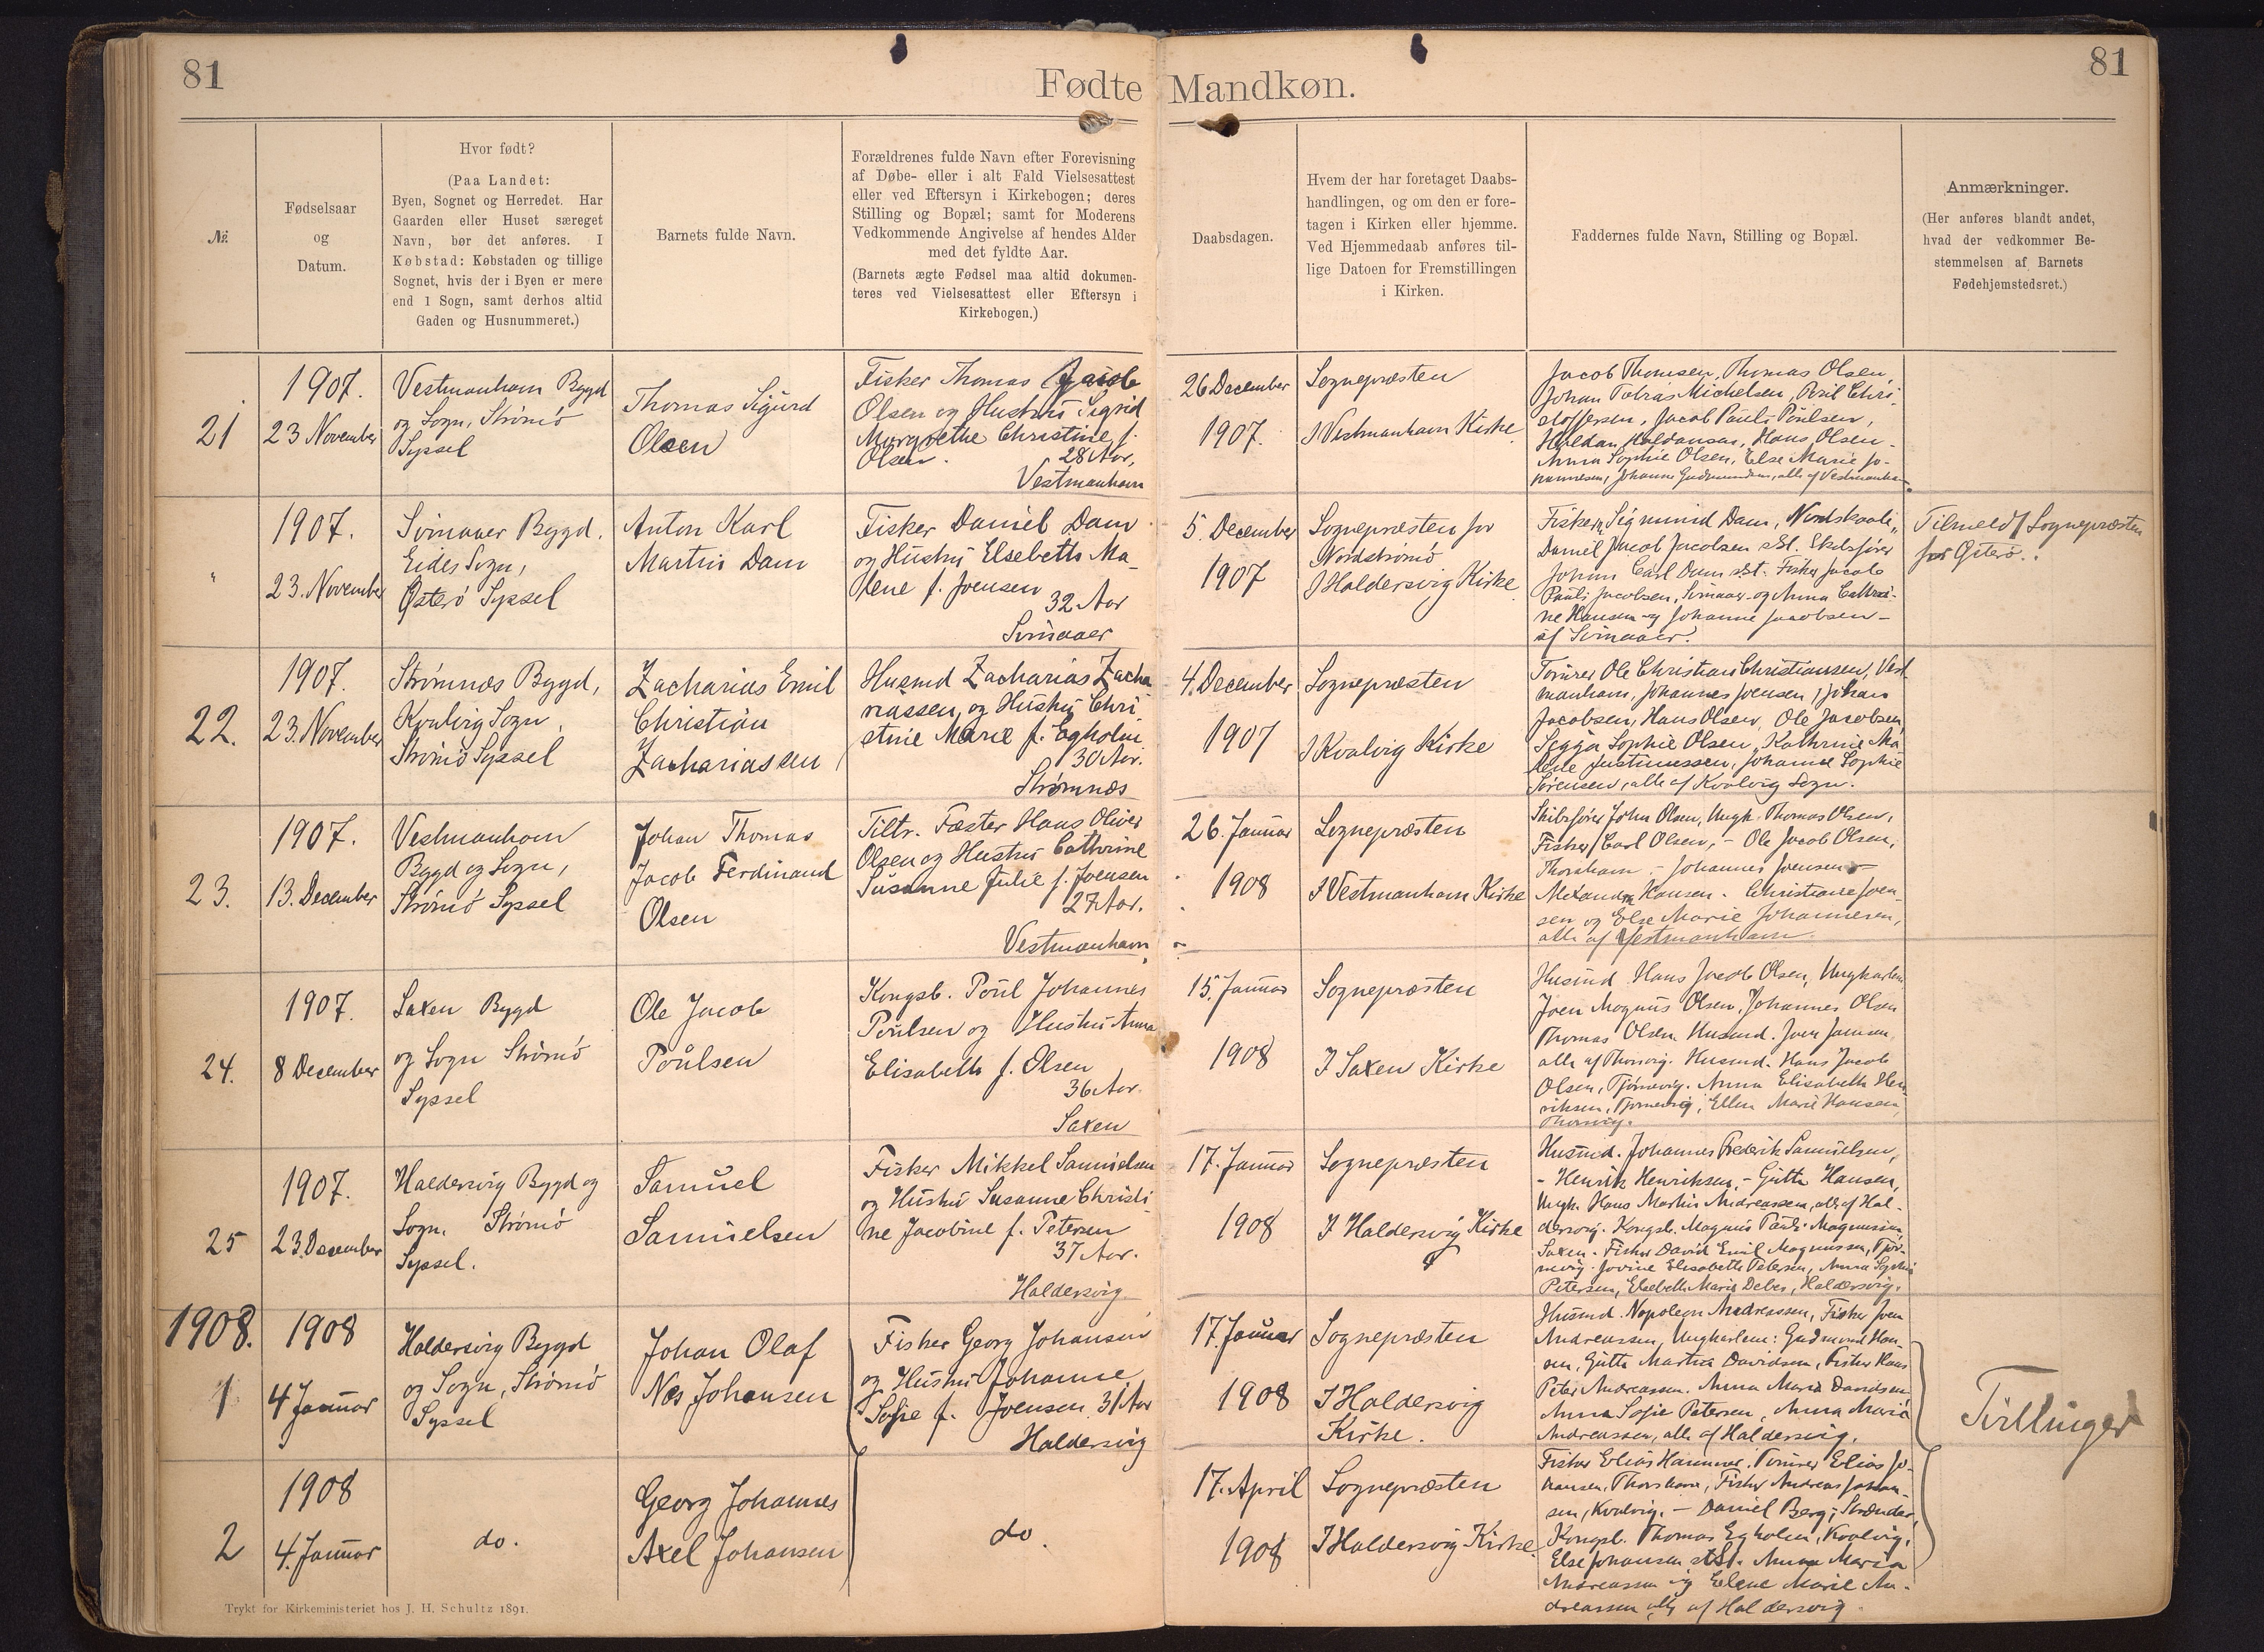 81
Fødte Mandkøn.
81
№
Fødselsaar
og
Datum.
Hvor født?
(Paa Landet:
Byen, Sognet og Herredet. Har
Gaarden eller Huset særeget
Navn, bør det anføres. I
Købstad: Købstaden og tillige
Sognet, hvis der i Byen er mere
end 1 Sogn, samt derhos altid
Gaden og Husnummeret.)
Barnets fulde Navn.
Forældrenes fulde Navn efter Forevisning
af Døbe- eller i alt Fald Vielsesattest
eller ved Eftersyn i Kirkebogen; deres
Stilling og Bopæl; samt for Moderens
Vedkommende Angivelse af hendes Alder
med det fyldte Aar.
(Barnets ægte Fødsel maa altid dokumen-
teres ved Vielsesattest eller Eftersyn i
Kirkebogen.)
Daabsdagen.
Hvem der har foretaget Daabs-
handlingen, og om den er fore-
tagen i Kirken eller hjemme.
Ved Hjemmedaab anføres til-
lige Datoen for Fremstillingen
i Kirken.
Faddernes fulde Navn, Stilling og Bopæl.
Anmærkninger.
(Her anføres blandt andet,
hvad der vedkommer Be-
stemmelsen af Barnets
Fødehjemstedsret.)
21
1907.
23 November
Vestmanhavn Bygd
og Sogn, Strømø
Syssel
Thomas Sigurd
Olsen
Fisker Thomas Jacob
Olsen og Hustru Sigrid
Margrethe Christine f.
Olsen. 28 Aar,
Vestmanhavn
26 December
1907.
Sognepræsten
I Vestmanhavn Kirke
Jacob Thomsen, Thomas Olsen,
Johan Tobias Michelsen, Poul Chri-
stoffersen, Jacob Pauli Poulsen,
Haldan Haldansen, Hans Olsen
Anna Sophie Olsen, Else Marie Jo-
hannesen, Johanne alle af Vestmanhavn
"
1907.
23. November
Svinaaer Bygd.
Eides Sogn,
Østerø Syssel
Anton Karl
Martin Dam
Fisker Daniel Dam
og Hustru Elsebeth Ma-
lene f. Joensen
32 Aar
Svinaaer
5. December
1907
Sognepræsten for
Nordstrømø
I Haldersvig Kirke
Fisker Sigmund Dam, Nordskaale,
Daniel Jacob Jacobsen sst. Skibsfører
Johan Carl Dam sst. Fisker Jacob
Pauli Jacobsen, Svinaaer og Anna Cathri-
ne Hansen og Johanne Jacobsen -
af Svinaaer.
Tilmeldt Sognepræsten
for Østerø.
22.
1907.
23. November
Strømnæs Bygd,
Kvalvig Sogn,
Strømø Syssel
Zacharias Emil
Christian
Zachariassen
Husmd Zacharias Zacha-
riassen og Hustru Chri-
stine Marie f. Egholm
30 Aar.
Strømnæs
4. December
1907
Sognepræsten
I Kvalvig Kirke
Tømrer Ole Christian Christiansen, Vest-
manhavn, Johannes Joensen, Johan
Jacobsen, Hans Olsen, Ole Jacobsen,
Segga Sophie Olsen, Kathrine Ma-
lene Justinussen, Johanne Sophie
Sørensen, alle af Kvalvig Sogn.
23.
1907.
13. December
Vestmanhavn
Bygd og Sogn,
Strømø Syssel
Johan Thomas
Jacob Ferdinand
Olsen
Tiltr. Fæster Hans Oliver
Olsen og Hustru Cathrine
Susanne Julie f. Joensen
27 Aar.
Vestmanhavn
26. Januar
1908
Sognepræsten
I Vestmanhavn Kirke
Skibsfører John Olsen, Ungk. Thomas Olsen,
Fisker Carl Olsen, - Ole Jacob Olsen,
Thorshavn - Johannes Joensen -
Alexandra Hansen - Christiane Joen-
sen og Else Marie Johannesen,
alle af Vestmanhavn.
24.
1907.
8 December
Saxen Bygd
og Sogn Strømø
Syssel
Ole Jacob
Poulsen
Kongsb. Poul Johannes
Poulsen og Hustru Anna
Elisabeth f. Olsen
36 Aar.
Saxen
15. Januar
1908
Sognepræsten
I Saxen Kirke
Husmd Hans Jacob Olsen, Ungkarlene
Joen Magnus Olsen, Johannes Olsen
Thomas Olsen Husmd. Joen Joensen,
alle af Thorsvig. Husmd. Hans Jacob
Olsen, Tjørnevig. Anna Elisabeth Hen-
riksen, Tjørnevig, Ellen Marie Hansen,
Thorsvig.
25
1907.
23. December
Haldersvig Bygd og
Sogn. Strømø
Syssel.
Samuel
Samuelsen
Fisker Mikkel Samuelsen
og Hustru Susanne Christi-
ne Jacobine f. Petersen
37 Aar.
Haldersvig
17. Januar
1908
Sognepræsten
I Haldersvig Kirke
Husmd. Johannes Frederik Samuelsen,
- Henrik Henriksen, - Gutte Hansen,
Ungk. Hans Martin Andreassen, alle af Hal-
dersvig. Kongsb. Magnus Pauli Magnussen,
Saxen. Fisker David Emil Magnussen, Tjør-
nevig. Jovine Elisabeth Petersen, Anna Sophie
Petersen, Elsebeth Marie Debes, Haldersvig.
1908.
1
1908
4 Januar
Haldersvig Bygd
og Sogn, Strømø
Syssel
Johan Olaf
Næs Johansen
Fisker Georg Johansen
og Hustru Johanne
Sofie f. Joensen 31 Aar
Haldersvig
17. Januar
1908
Sognepræsten
I Haldersvig
Kirke.
Husmd. Napoleon Andreassen, Fisker Joen
Andreassen, Ungkarlene: Gudmund Han-
sen, Gutte Martin Davidsen, Fisker Hans
Peter Andreassen. Anna Maria Davidsen
Anna Sofie Petersen, Anna Maria
Andreassen, alle af Haldersvig.
Tvillinger
2
1908
4. Januar
do.
Georg Johannes
Axel Johansen
do.
17. April
1908
Sognepræsten
I Haldersvig Kirke
Fisker Elias Hammer, Tømrer Elias Jo-
hansen, Thorshavn, Fisker Andreas Johan-
sen, Kvalvig. - Daniel Berg, Strænder,
Kongsb. Thomas Egholm, Kvalvig,
Else Johansen sst. Anna Maria
Andreassen og Elene Marie An-
dreassen alle af Haldersvig.
Trykt for Kirkeministeriet hos J. H. Schultz 1891.